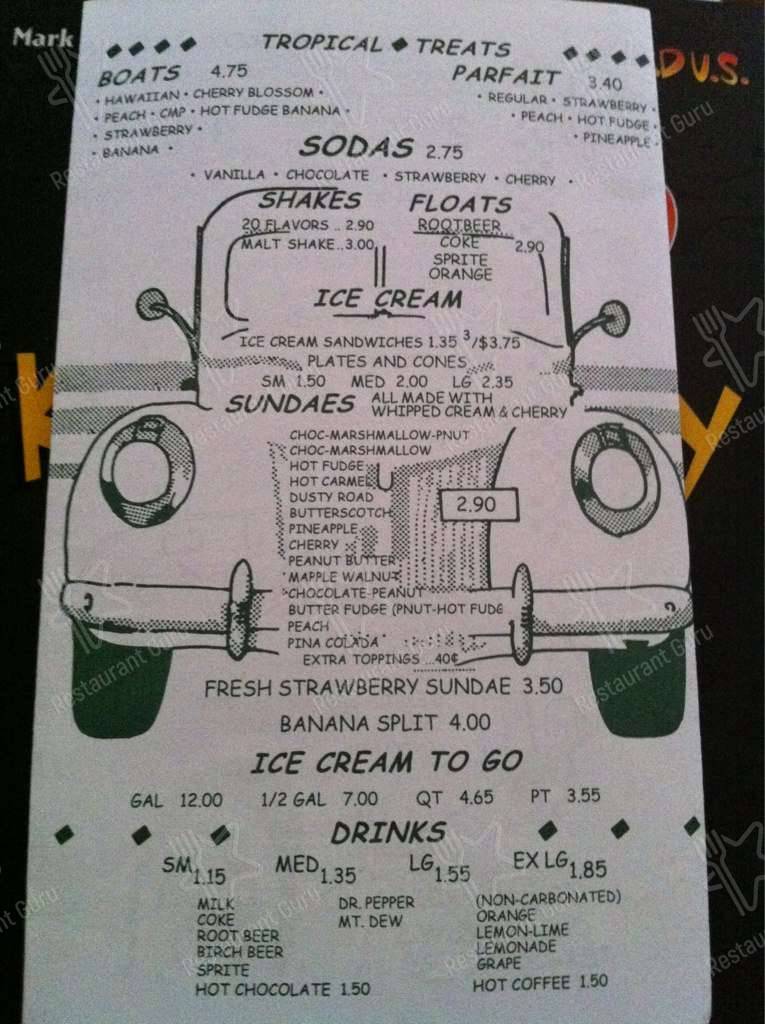 Mark
D U.S.
TROPICAL ◆ TREATS
BOATS 4.75
• HAWAIIAN • CHERRY BLOSSOM •
• PEACH • CMP • HOT FUDGE BANANA •
• STRAWBERRY •
• BANANA •
PARFAIT 3.40
• REGULAR • STRAWBERRY •
• PEACH • HOT FUDGE •
• PINEAPPLE •
SODAS 2.75
• VANILLA • CHOCOLATE • STRAWBERRY • CHERRY •
SHAKES
20 FLAVORS .. 2.90
MALT SHAKE..3.00
FLOATS
ROOTBEER
COKE 2.90
SPRITE
ORANGE
ICE CREAM
ICE CREAM SANDWICHES 1.35 3/$3.75
PLATES AND CONES
SM 1.50 MED 2.00 LG 2.35
SUNDAES ALL MADE WITH
WHIPPED CREAM & CHERRY
CHOC-MARSHMALLOW-PNUT
CHOC-MARSHMALLOW
HOT FUDGE
HOT CARMEL
DUSTY ROAD
2.90
BUTTERSCOTCH
PINEAPPLE
CHERRY
PEANUT BUTTER
MAPPLE WALNUT
CHOCOLATE-PEANUT
BUTTER FUDGE (PNUT-HOT FUDG
PEACH
PINA COLADA
EXTRA TOPPINGS ...40¢
FRESH STRAWBERRY SUNDAE 3.50
BANANA SPLIT 4.00
ICE CREAM TO GO
GAL 12.00 1/2 GAL 7.00 QT 4.65 PT 3.55
DRINKS
SM 1.15 MED 1.35 LG 1.55 EX LG 1.85
MILK
COKE
ROOT BEER
BIRCH BEER
SPRITE
HOT CHOCOLATE 1.50
DR. PEPPER
MT. DEW
(NON-CARBONATED)
ORANGE
LEMON-LIME
LEMONADE
GRAPE
HOT COFFEE 1.50
Restaurant Guru
Restaurant Guru
Restaurant Guru
Restaurant Guru
Restaurant Guru
Restaurant Guru